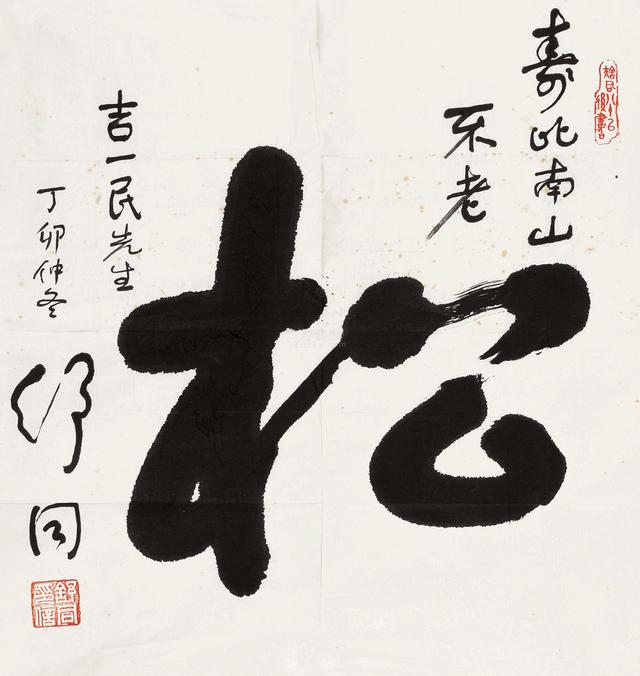 寿比南山
不老
松
吉一民先生
丁卯仲冬
舒同
舒同印信